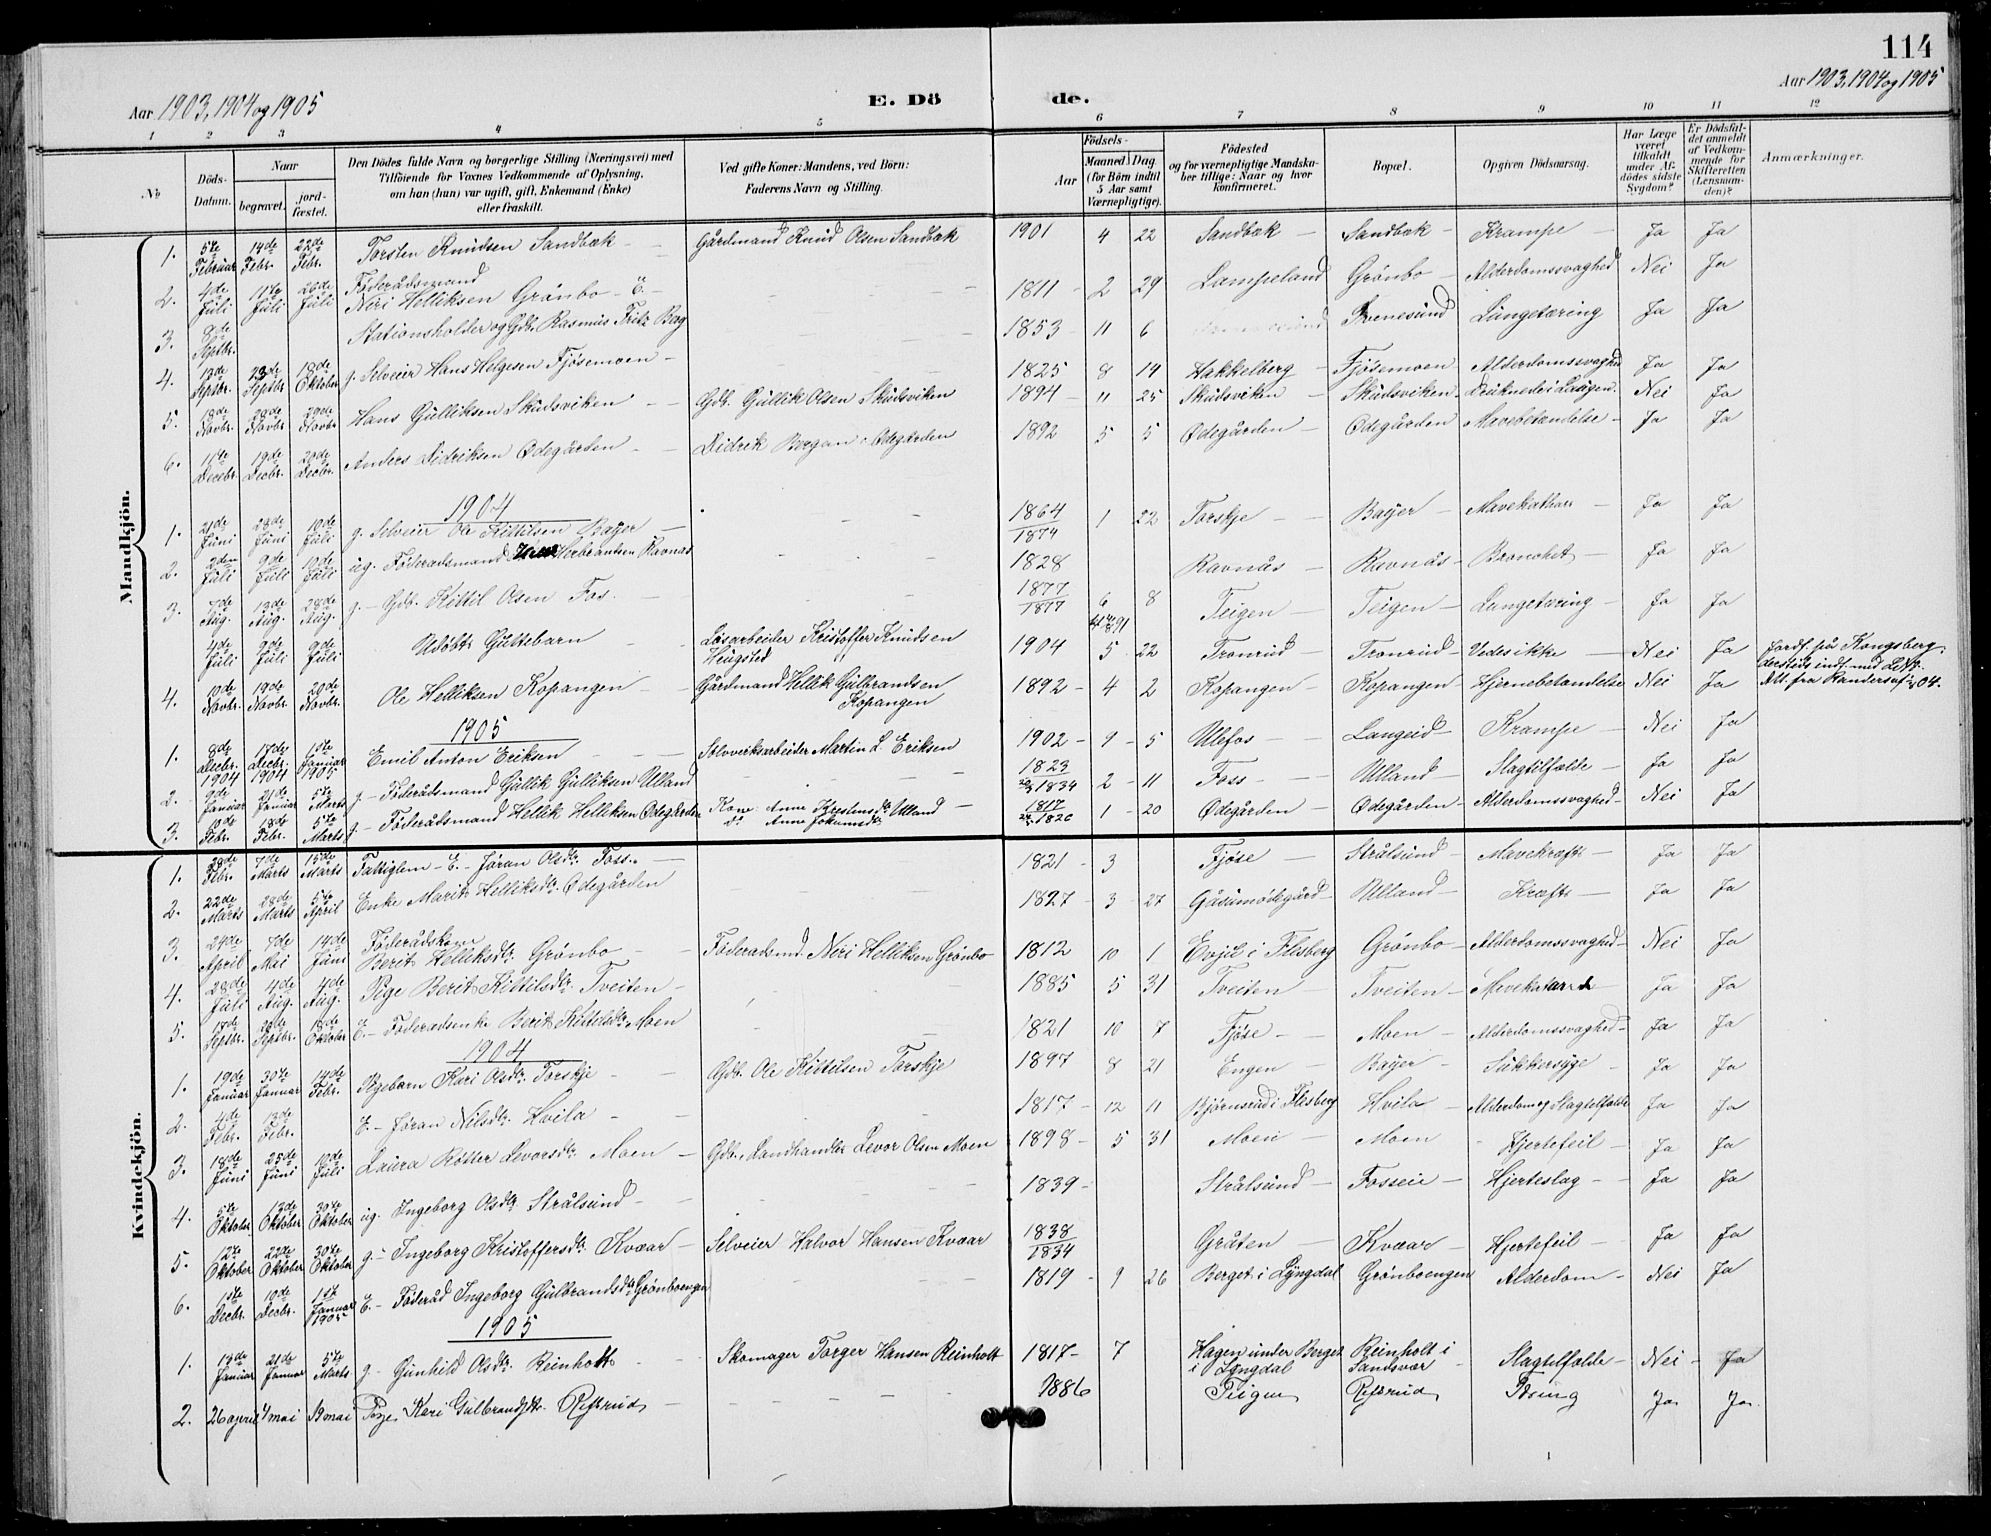 114
Aar 1903, 1904 og 1905
E. Dö
de.
Aar 1903, 1904 og 1905
1 2 3 4 5 6 7 8 9 10 11 12
№ Döds-Datum. Naar begravet. jord-fæstet. Den Dödes fulde Navn og borgerlige Stilling (Næringsvei) med Tilföiende for Voxnes Vedkommende af Oplysning, om han (hun) var ugift, gift, Enkemand (Enke) eller fraskilt. Ved gifte Koner: Mandens, ved Börn: Faderens Navn og Stilling. Födsels- Aar Maaned Dag (for Börn indtil 5 Aar samt Værnepligtige). Födested og for værnepligtige Mandskaber tillige: Naar og hvor konfirmeret. Bopæl. Opgiven Dödsaarsag. Har Læge været tilkaldt under Afdödes sidste Sygdom? Er Dödsfaldet anmeldt af Vedkommende for Skifteretten (Lensmanden)? Anmærkninger.
Mandkjön.
1. 5te Februar 14de Febr. 22de Febr. Torsten Knudsen Sandbæk Gårdmand Knud Olsen Sandbæk 1901 4 22 Sandbæk Sandbæk Krampe Ja Ja
2. 4de Juli 11te Juli 26de Juli Föderådsmand Neri Helliksen Grönbo E. 1811 2 29 Lampeland Grönbo Alderdomssvaghed Nei Ja
3. 8de Septbr. Stationsholder og Gdb. Rasmus Fritz Bag 1853 11 6 Svenesund Lungetæring Ja Ja
4. 13de Septbr. 23de Septbr. 18de Oktober g. Selveier Hans Helgesen Fjösemoen 1825 8 14 Hakkelberg Fjösemoen Alderdomssvaghed Ja Ja
5. 18de Novbr. 28de Novbr. 29de Novbr. Hans Gulliksen Skudsviken Gdb. Gullik Olsen Skudsviken 1894 11 25 Skudsviken Skudsviken Druknede i Laagen. Nei Ja
6. 11te Decbr. 19de Decbr. 20de Decbr. Anders Didriksen Ödegården Didrik Bergan Ödegården 1892 5 5 Ödegården Ödegården Mavebetændelse Ja Ja
1904
1. 21de Juni 28de Juni 10de Juli g. Selveier Ole Kittilsen Bayer 1864 1874 1 22 Torskje Bayer Mavekathar Ja Ja
2. 2den Juli 9de Juli 10de Juli ug. Föderadsmand Herbrandsen Ravnås 1828 Ravnås Ravnås Bronchit Ja Ja
3. 7de Aug. 13de Aug. 28de Aug. g. Gdb. Kittil Olsen Fos. 1877 1877 6 8 Teigen Teigen Lungetæring Ja Ja
4de Juli 9de Juli 9de Juli Udöbt Guttebarn Lösarbeider Kristoffer Knudsen Heugsted 1904 5 22 Tronrud Tronrud Vides ikke Nei Ja Jordf. på Kongsberg.
4. 10de Novbr. 19de Novbr. 20de Novbr. Ole Helliksen Kopangen Gårdmand Hellik Gulbrandsen Kopangen 1892 4 2 Kopangen Kopangen Hjernebetændelse Nei Ja
1905
1. 8de Decbr. 1904 17de Decbr. 1904 1ste Januar 1905 Emil Anton Eriksen Sölvverksarbeider Martin L. Eriksen 1902 9 5 Ulefos Langeid Krampe Nei Ja
2. 9de Januar 21de Januar 5te Marts g. Föderådsmand Gullik Gulliksen Ulland 1823 1834 2 11 Foss Ulland Slagtilfælde Ja Ja
3. 10de Febr. 18de Febr. 5te Marts g. Föderådsmand Hellik Helliksen Ödegården Kone Anne Ulland do Anne 1817 1820 1 20 Ödegården Ödegården Alderdomssvaghed Nei Ja
Kvindekjön.
1. 28de Febr. 7de Marts 15de Marts Fattiglem E. Jöran Olsdtr. Foss. 1821 3 Fjöse Strålsund Mavekræft Ja Ja
2. 22de Marts 28de Marts 5te April Enke Marit Helliksdtr. Ödegården 1827 3 27 Ulland Kræft Ja Ja
3. 24de April 7de Mai 14de Juni Föderådskone Berit Helliksdtr. Grönbo Föderadsmd. Neri Helliksen Grönbo 1812 10 1 Evjil i Flesberg Grönbo Alderdomssvaghed Nei Ja
4. 28de Juli 4de Aug. 4de Aug. Pige Berit Kittilsdtr. Tveiten 1885 5 31 Tveiten Tveiten Mavekatarr Ja Ja
5. 18de Septbr. 26de Septbr. 18de Oktober E. Föderadsenke Berit Kittilsdtr. Moen 1821 10 7 Fjöse Moen Alderdomssvaghed Ja Ja
1904
1. 19de Januar 30te Januar 14de Febr. Pigebarn Kari Olsdtr. Torskje Gdb. Ole Kittilsen Torskje 1897 8 21 Engen Bayer Sukkersyge Ja Ja
2. 4de Febr. 13de Febr. E. Jöran Nilsdtr. Hvila 1817 12 11 Björnsrud i Flesberg Hvila Alderdom og Slagtilfælde Ja Ja
3. 18de Juni 25de Juni 10de Juli Laura Levorsdtr. Moen Gdb. Landhandler Levor Olsen Moen 1898 5 31 Moen Moen Hjertefeil Ja Ja
4. 5te Oktober 13de Oktober 30te Oktober ug. Ingeborg Olsdtr. Strålsund 1839 Strålsund Fosseie Hjerteslag Ja Ja
5. 12te Oktober 22de Oktober 30te Oktober g. Ingeborg Kristoffersdtr. Kvæar Selveier Halvor Hansen Kvæar 1838 1834 Gråten Kvæar Hjertefeil Ja Ja
6. 1ste Decbr. 10de Decbr. 1ste Januar 1905 E. Föderåd Ingeborg Gulbrandsdtr. Grönboengen 1819 9 26 Berget i Lyngdal Grönboengen Alderdom Nei Ja
1905
1. 13de Januar 21de Januar 5te Marts g. Gunhild Olsdtr. Reinholt Skomager Torger Hansen Reinholt 1817 7 Hagen under Berget i Lyngdal Reinholt i Sandsvær Slagtilfælde Nei Ja
2. 26 april 4 mai 19 mai Pige Kari Gulbrandsdtr. Refsrud 1886 Teigen Refsrud Tæring Ja Ja